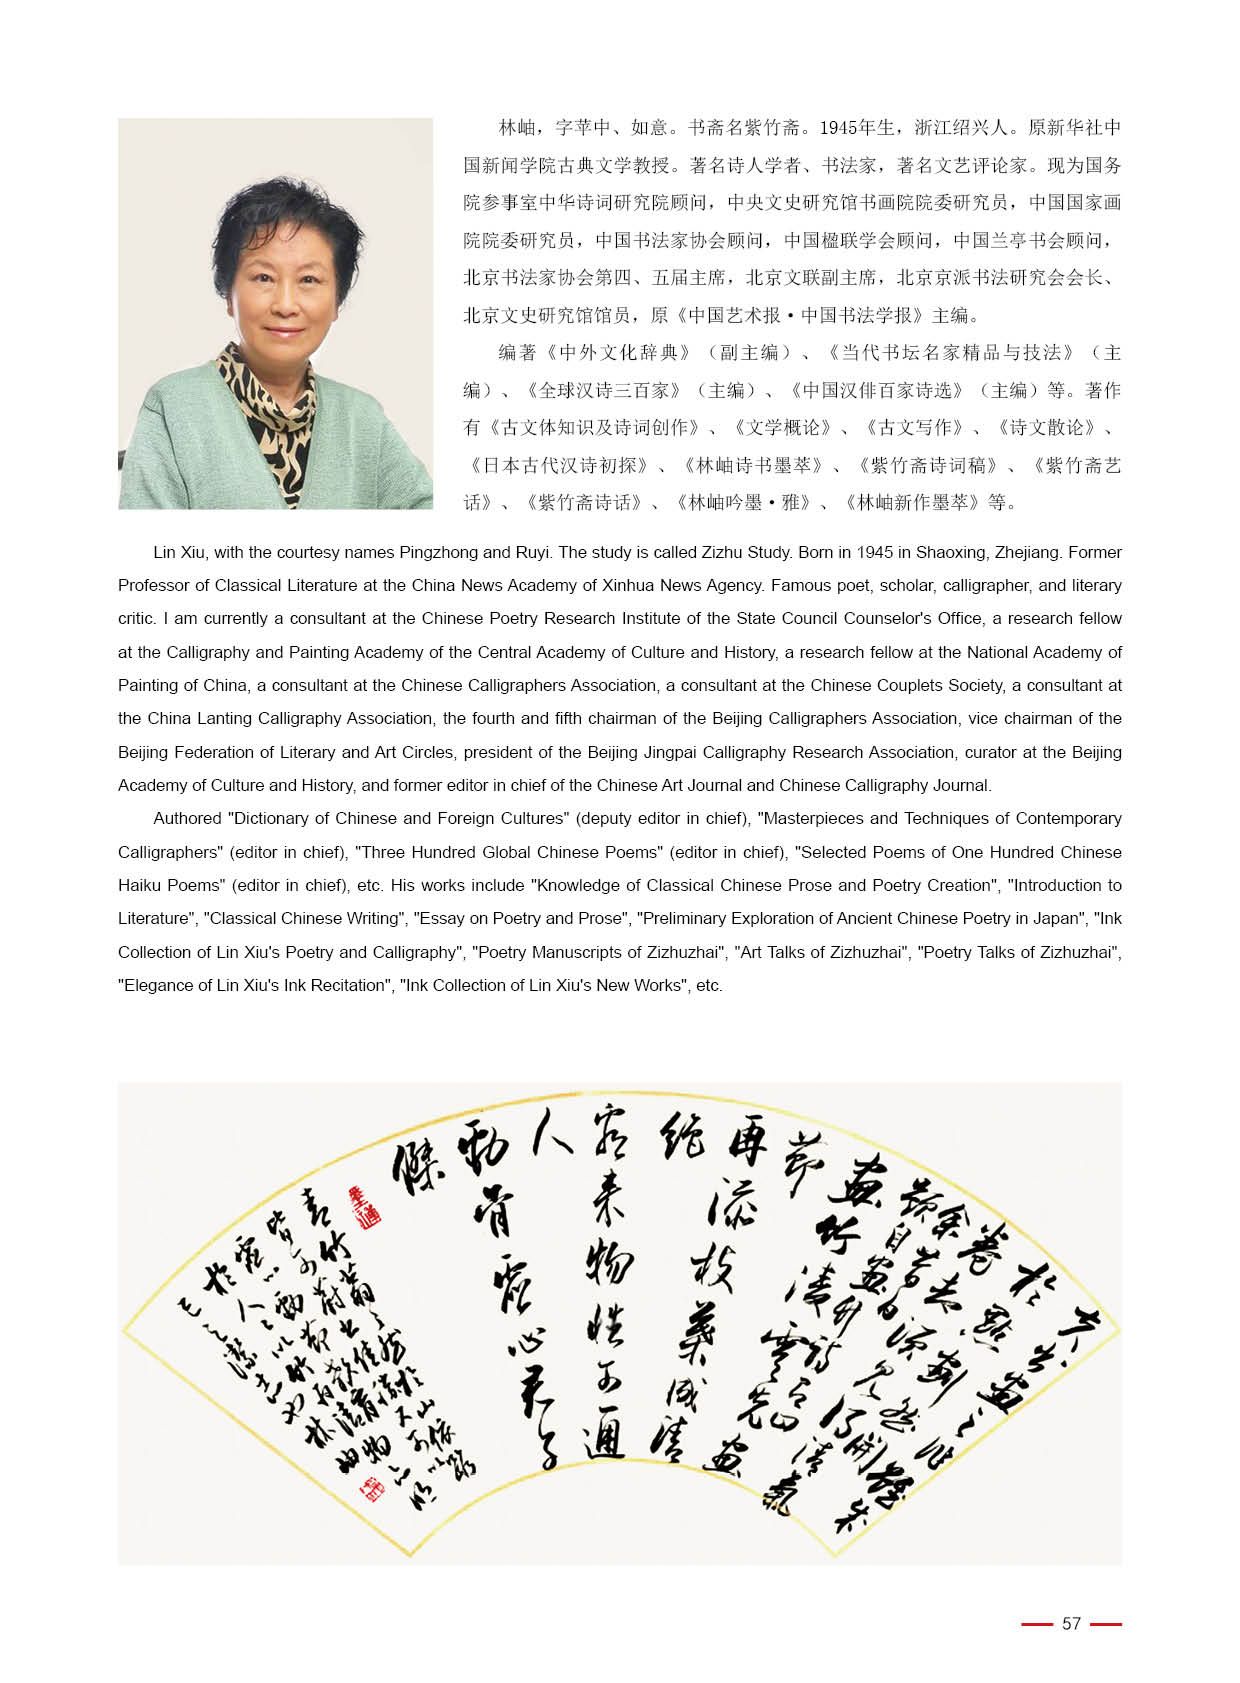 林岫，字苹中、如意。书斋名紫竹斋。1945年生，浙江绍兴人。原新华社中
国新闻学院古典文学教授。著名诗人学者、书法家，著名文艺评论家。现为国务
院参事室中华诗词研究院顾问，中央文史研究馆书画院院委研究员，中国国家画
院院委研究员，中国书法家协会顾问，中国楹联学会顾问，中国兰亭书会顾问，
北京书法家协会第四、五届主席，北京文联副主席，北京京派书法研究会会长、
北京文史研究馆馆员，原《中国艺术报·中国书法学报》主编。
编著《中外文化辞典》（副主编）、《当代书坛名家精品与技法》（主
编）、《全球汉诗三百家》（主编）、《中国汉俳百家诗选》（主编）等。著作
有《古文体知识及诗词创作》、《文学概论》、《古文写作》、《诗文散论》、
《日本古代汉诗初探》、《林岫诗书墨萃》、《紫竹斋诗词稿》、《紫竹斋艺
话》、《紫竹斋诗话》、《林岫吟墨·雅》、《林岫新作墨萃》等。
Lin Xiu, with the courtesy names Pingzhong and Ruyi. The study is called Zizhu Study. Born in 1945 in Shaoxing, Zhejiang. Former
Professor of Classical Literature at the China News Academy of Xinhua News Agency. Famous poet, scholar, calligrapher, and literary
critic. I am currently a consultant at the Chinese Poetry Research Institute of the State Council Counselor's Office, a research fellow
at the Calligraphy and Painting Academy of the Central Academy of Culture and History, a research fellow at the National Academy of
Painting of China, a consultant at the Chinese Calligraphers Association, a consultant at the Chinese Couplets Society, a consultant at
the China Lanting Calligraphy Association, the fourth and fifth chairman of the Beijing Calligraphers Association, vice chairman of the
Beijing Federation of Literary and Art Circles, president of the Beijing Jingpai Calligraphy Research Association, curator at the Beijing
Academy of Culture and History, and former editor in chief of the Chinese Art Journal and Chinese Calligraphy Journal.
Authored "Dictionary of Chinese and Foreign Cultures" (deputy editor in chief), "Masterpieces and Techniques of Contemporary
Calligraphers" (editor in chief), "Three Hundred Global Chinese Poems" (editor in chief), "Selected Poems of One Hundred Chinese
Haiku Poems" (editor in chief), etc. His works include "Knowledge of Classical Chinese Prose and Poetry Creation", "Introduction to
Literature", "Classical Chinese Writing", "Essay on Poetry and Prose", "Preliminary Exploration of Ancient Chinese Poetry in Japan", "Ink
Collection of Lin Xiu's Poetry and Calligraphy", "Poetry Manuscripts of Zizhuzhai", "Art Talks of Zizhuzhai", "Poetry Talks of Zizhuzhai",
"Elegance of Lin Xiu's Ink Recitation", "Ink Collection of Lin Xiu's New Works", etc.
畫竹凌雲先畫
節
再添枝葉成清
絶
看来物性可通
人
勁骨虚心君子
傑
57